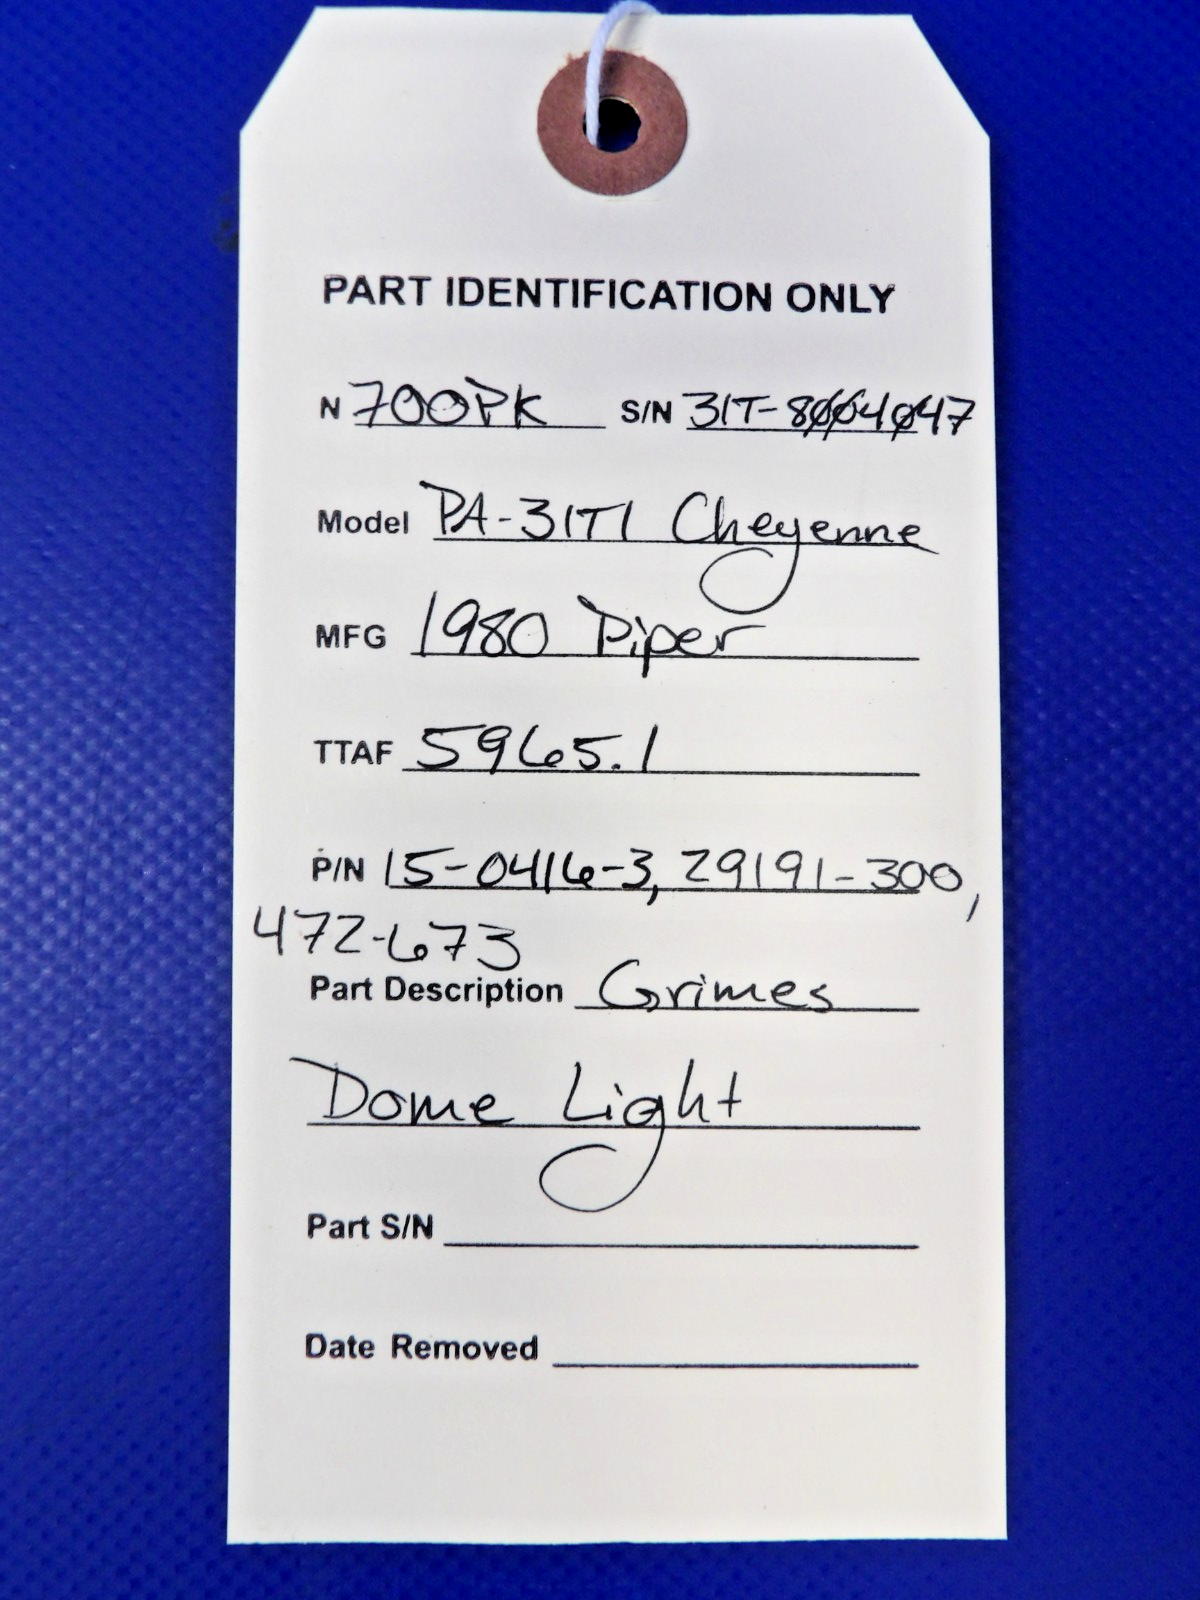 PART IDENTIFICATION ONLY
N 700PK S/N 31T-8004047
Model PA-31T1 Cheyenne
MFG 1980 Piper
TTAF 5965.1
P/N 15-0416-3, 29191-300,
472-673
Part Description Grimes
Dome Light
Part S/N
Date Removed